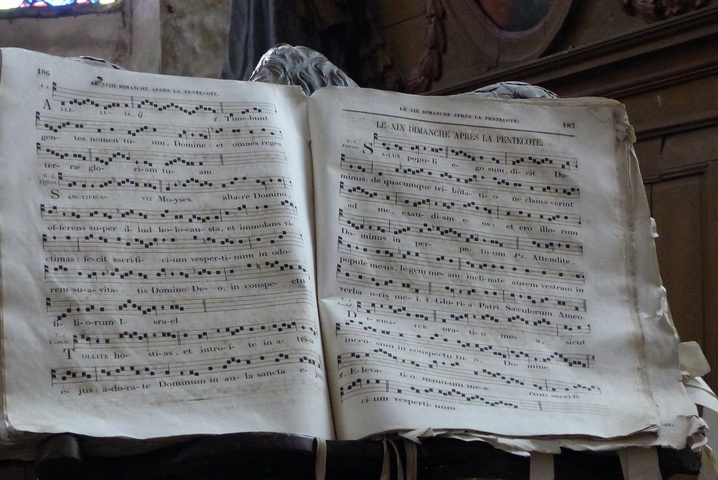 186
LE XVIII DIMANCHE APRÈS LA PENTECOTE.
A LLE- LU- IA. ℣. Timebunt
gen- tes nomen tu- um, Domine: et omnes reges
ter- ræ glo- ri-am tu- am.
S ANCTIFICA- VIT Mo-yses alta-re Domino
of-ferens su-per il-lud ho-lo-cau-sta, et immolans vi-
ctimas: fe-cit sacri-fi- ci-um vesper-ti-num in odo-
rem su-a-vita- tis Domino De- o, in conspe- ctu
fi- li-o-rum I- sra-el.
T OLLITE ho- sti-as, et intro-i- te in a- tria
e- jus: a-do-ra-te Dominum in au-la sancta e-
LE XIX DIMANCHE APRÈS LA PENTECOTE.
187
LE XIX DIMANCHE APRÈS LA PENTECOTE.
S ALUS popu-li e- go sum, di-cit Do-
minus de quacumque tri-bula-ti-o- ne clama verint
ad me, exau-di-am e-os: et ero illo-rum
Do-minus in per- pe-tu-um. Ps. Attendite,
popule me-us, legem me-am: incli-nate aurem vestram in
verba o-ris me-i. ℣. Glo-ri-a Patri. Sæculorum Amen.
D IRIGA- TUR ora-ti-o me- a, sicut
incen-sum in conspectu tu-o, Do-mine.
℣. E-leva- ti-o manu-um me-a- rum sacri-fi-
ci-um vesperti-num.